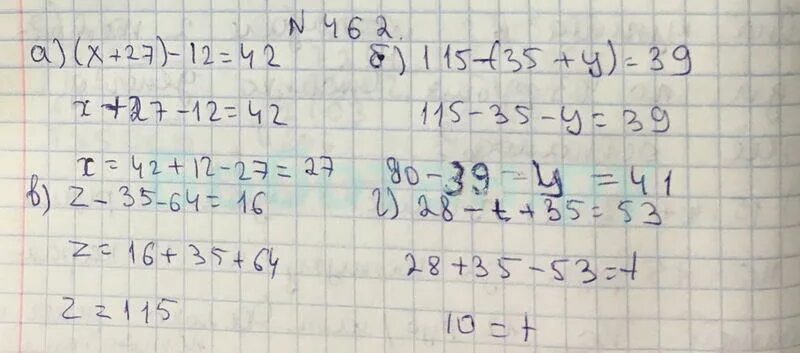 N 462.
а) (x+27)-12=42
x+27-12=42
x=42+12-27=27
б) 115-(35+y)=39
115-35-y=39
80-39=y=41
в) z-35-64=16
z=16+35+64
z=115
г) 28-t+35=53
28+35-53=t
10=t